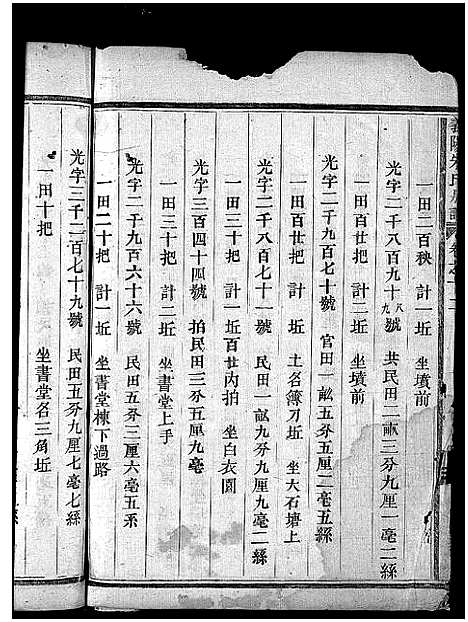 一田二百秧 計一坵 坐墳前
光字二千八百九十八九號 共民田二畝三分九厘一毫二絲
一田百廿把 計二坵 坐墳前
光字二千九百七十號 官田一畝五分五厘二毫五絲
一田百廿把 計一坵 土名簿刀坵 坐大石塘上
光字二千八百七十一號 民田一畝九分九厘九毫二絲
一田三十把 計一坵百廿內拍 坐白衣園
光字三百四十四號 拍民田三分五厘九毫
一田三十把 計二坵 坐書堂上手
光字二千九百六十六號 民田五分三厘六毫五系
一田二十把 計一坵 坐書堂棟下過路
光字三千二百七十九號 民田五分九厘七毫七絲
一田十把 坐書堂名三角坵